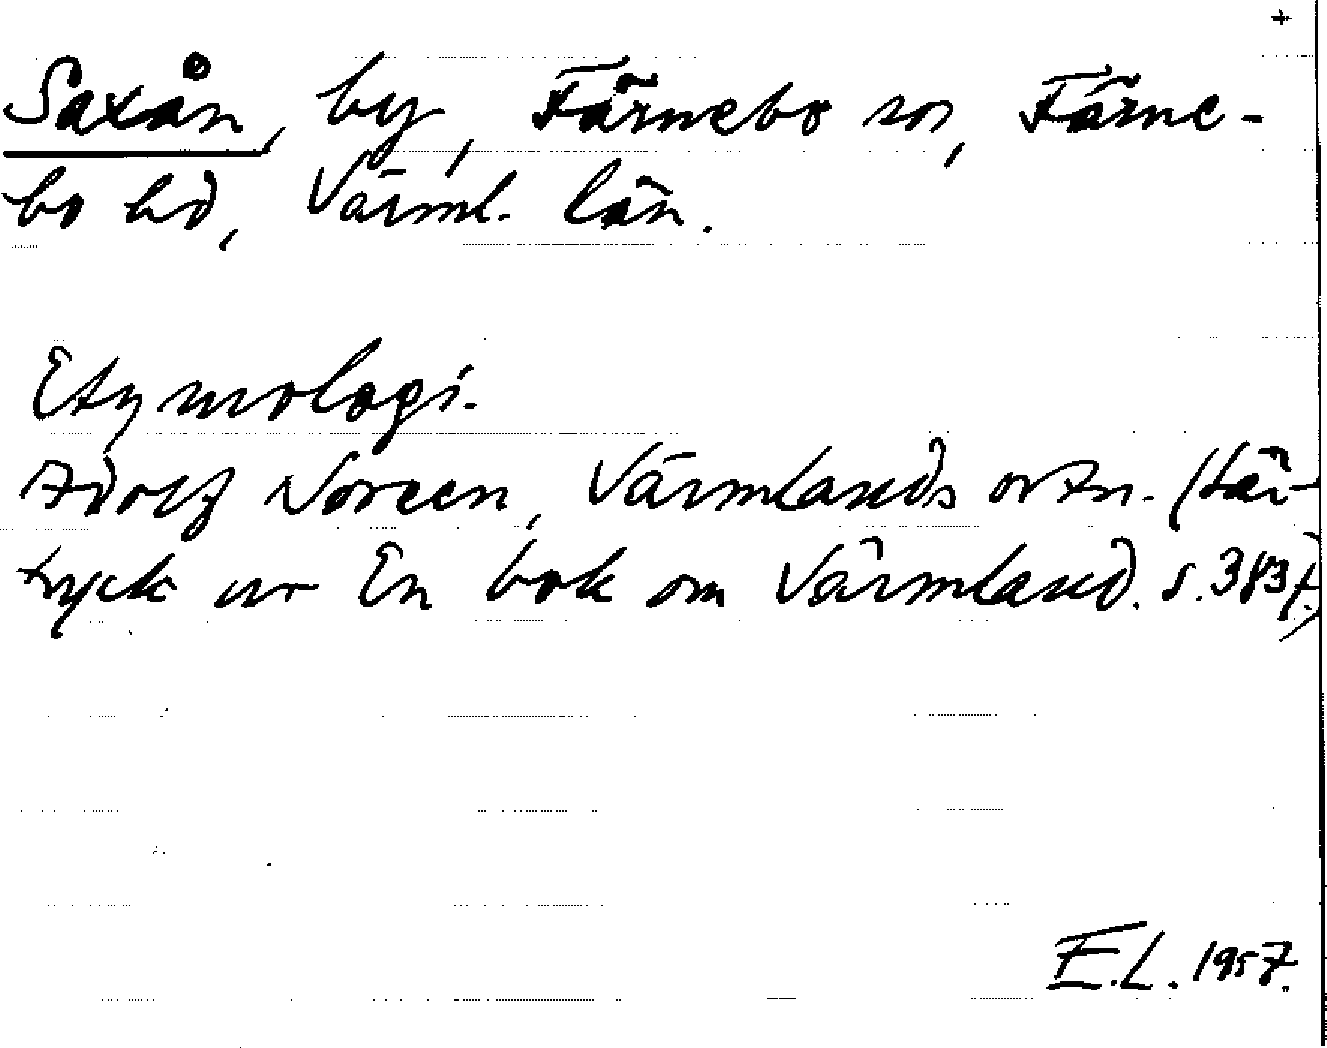 +
Saxån, by, Färnebo sn, Färne-
bo hd, Värml. län.
Etymologi.
Adolf Noreen, Värmlands ortn. (Sär-
tryck ur En bok om Värmland. s. 383f.)
E.L. 1957.